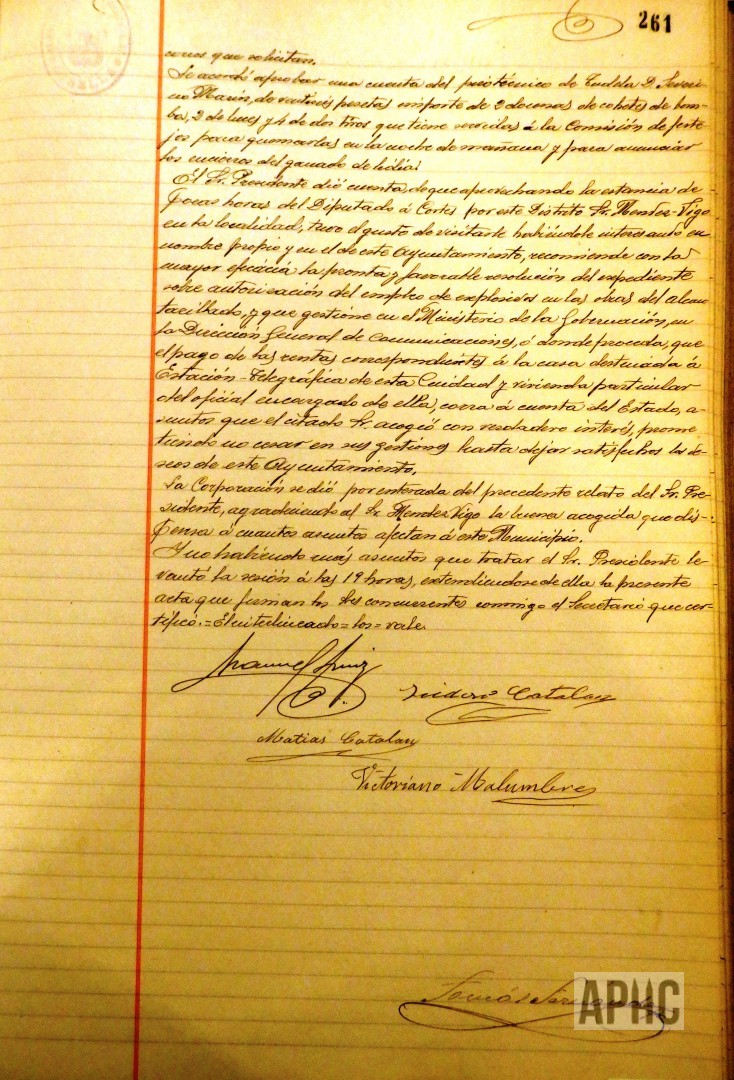 261
curros que solicitan.
Se acordó aprobar una cuenta del pirotécnico de Tudela D. Severi-
no Marín, de pesetas importe de 2 docenas de cohetes de bom-
ba, 2 de luces y 4 de dos tiros que tiene servidas á la Comisión de feste-
jos para quemarlas en la noche de mañana y para anunciar
los encierros del ganado de lidia.
El Sr. Presidente dió cuenta, de que aprovechando la estancia de
pocas horas del Diputado á Cortes por este Distrito Sr. Mendez-Vigo
en la localidad, tuvo el gusto de visitarle habiéndole interesado en
nombre propio y en el de este Ayuntamiento, recomiende con la
mayor eficacia la pronta y favorable resolución del expediente
sobre autorización del empleo de explosivos en las obras del alcan-
tarillado, y que gestione en el Ministerio de la Gobernación, en
la Dirección General de Comunicaciones, ó donde proceda, que
el pago de las rentas correspondientes á la casa destinada á
Estación Telegráfica de esta Ciudad y vivienda particular
del oficial encargado de ella, corra á cuenta del Estado, a-
suntos que el citado Sr. acogió con verdadero interés, prome-
tiendo no cesar en sus gestiones hasta dejar satisfechos los de-
seos de este Ayuntamiento.
La Corporación se dió por enterada del precedente relato del Sr. Pre-
sidente, agradeciendo al Sr. Mendez Vigo la buena acogida que dis-
pensa á cuantos asuntos afectan á este Municipio.
Y no habiendo más asuntos que tratar el Sr. Presidente le-
vantó la sesión á las 19 horas, extendiéndose de ella la presente
acta que firman los Sres concurrentes conmigo el Secretario que cer-
tifico.=El interlineado=los=vale.
Manuel Ruiz
Isidoro Catalan
Matias Catalan
Victoriano Malumbres
Tomás
APHC